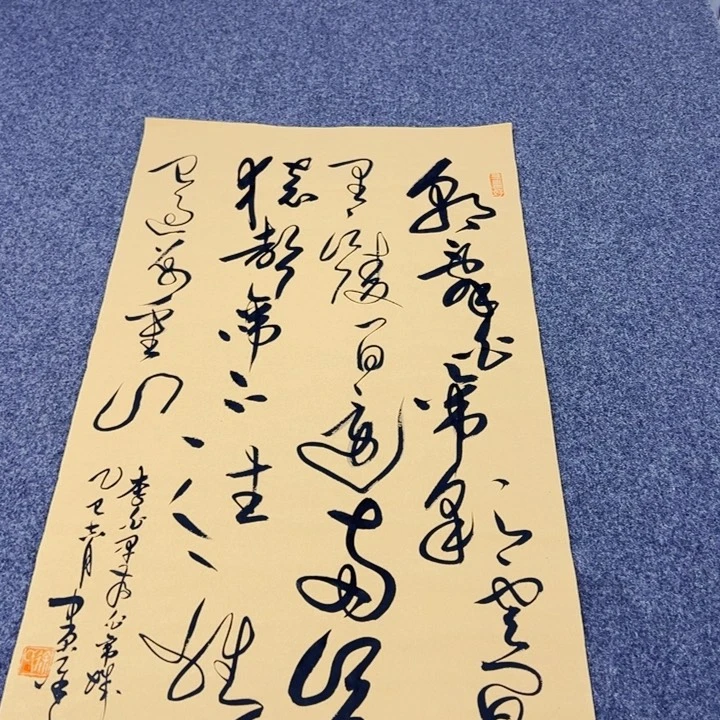 朝辭白帝彩雲間
里江陵一日還兩岸
猿聲啼不住
已過萬重山
李白早發白帝城
乙巳六月